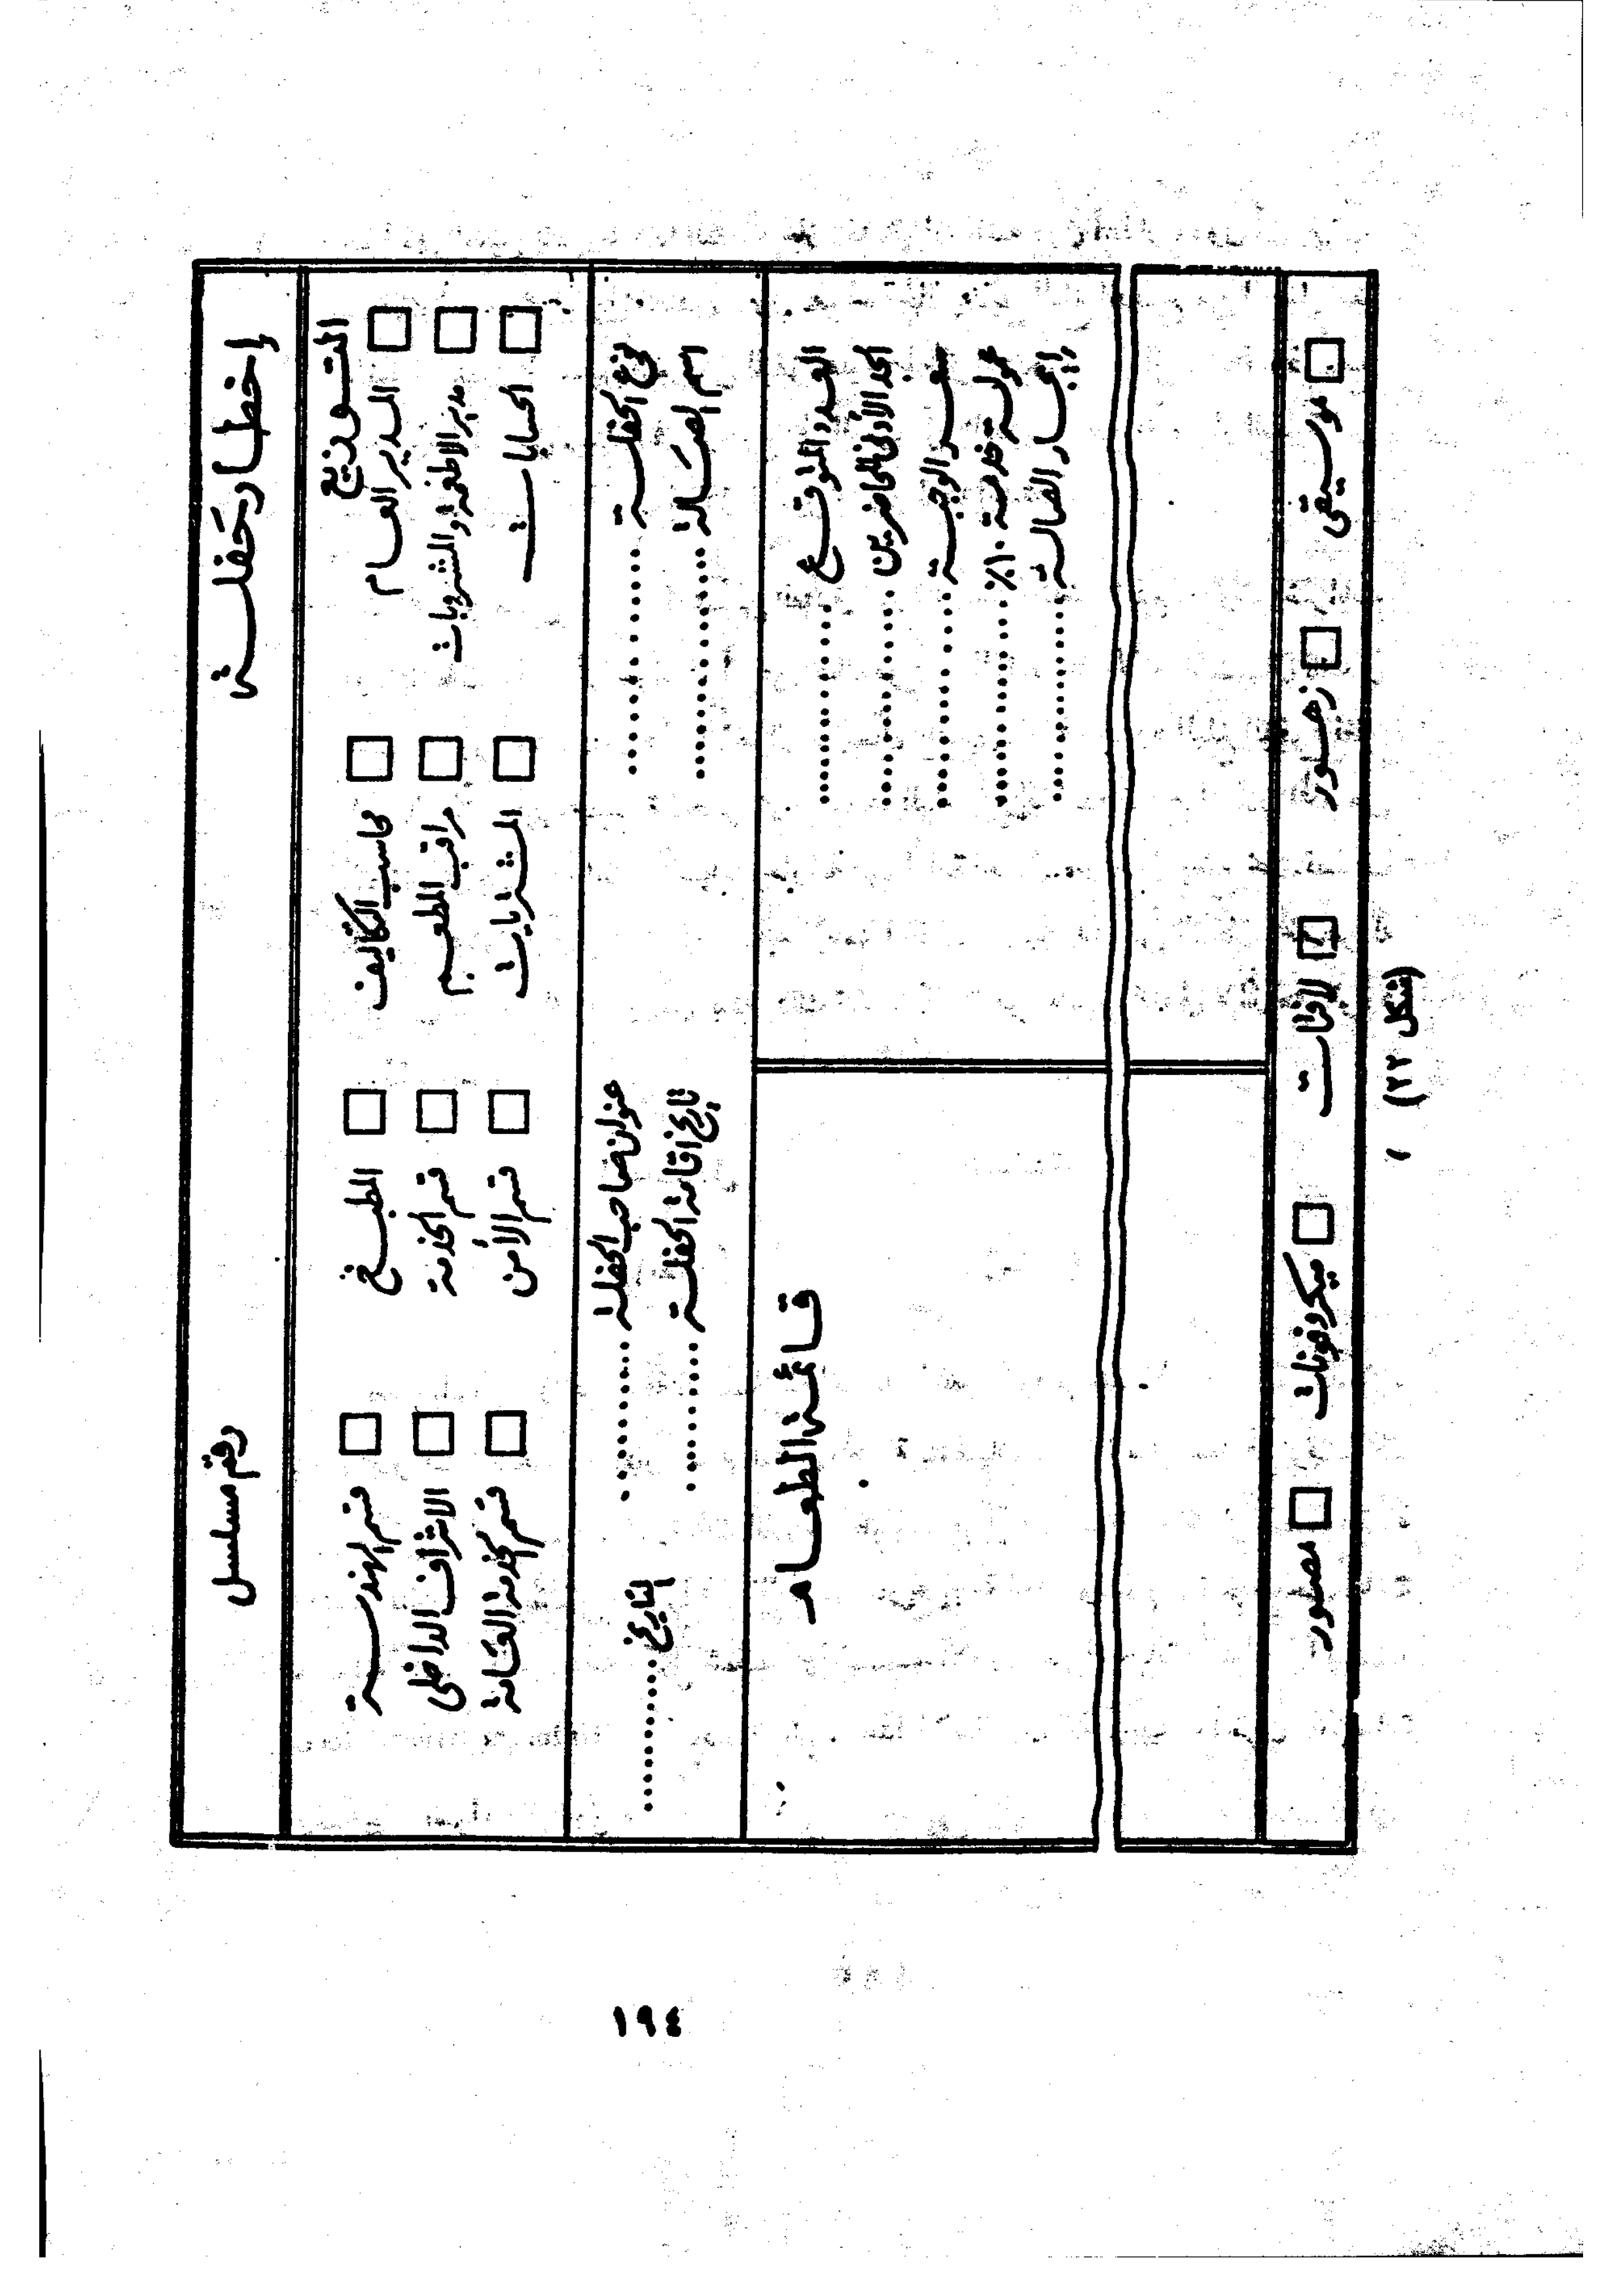 إخطار حفلة
رقم مسلسل
التوزيع
المدير العام
محاسب التكاليف
المطبخ
قسم الهندسة
مدير الاطعمة والمشروبات
مراقب المطعم
قسم الخدمة
الاشراف الداخلى
الحسابات
المشتريات
قسم الأمن
نوع الحفلة ............
عنوان صاحب الحفلة .........
التاريخ ............
اسم الصالة ............
تاريخ اقامة الحفلة .........
العدد المتوقع ............
الحد الأدنى للحاضرين ............
سعر الوجبة ............
عمولة خدمة ١٠٪ ............
إيجار الصالة ............
قائمة الطعام
موسيقى
زهور
لافتات
ميكروفونات
مصور
(شكل ٢٢)
١٩٤